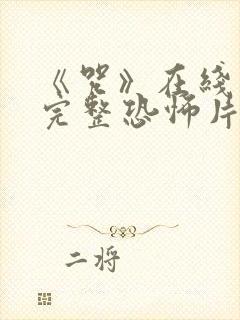 《咒》在线
完整恐怖片
二将